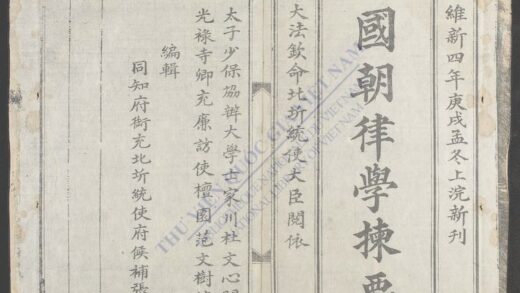 維新四年庚戌孟冬上浣新刊
國朝律學揀要
大法欽命北圻統使大臣閱依
太子少保協辦大學士家川杜文心
光祿寺卿充廉訪使檀園范文樹
編輯
同知府銜充北圻統使府候補張
THƯ VIỆN QUỐC GIA VIỆT NAM
NATIONAL LIBRARY OF VIETNAM